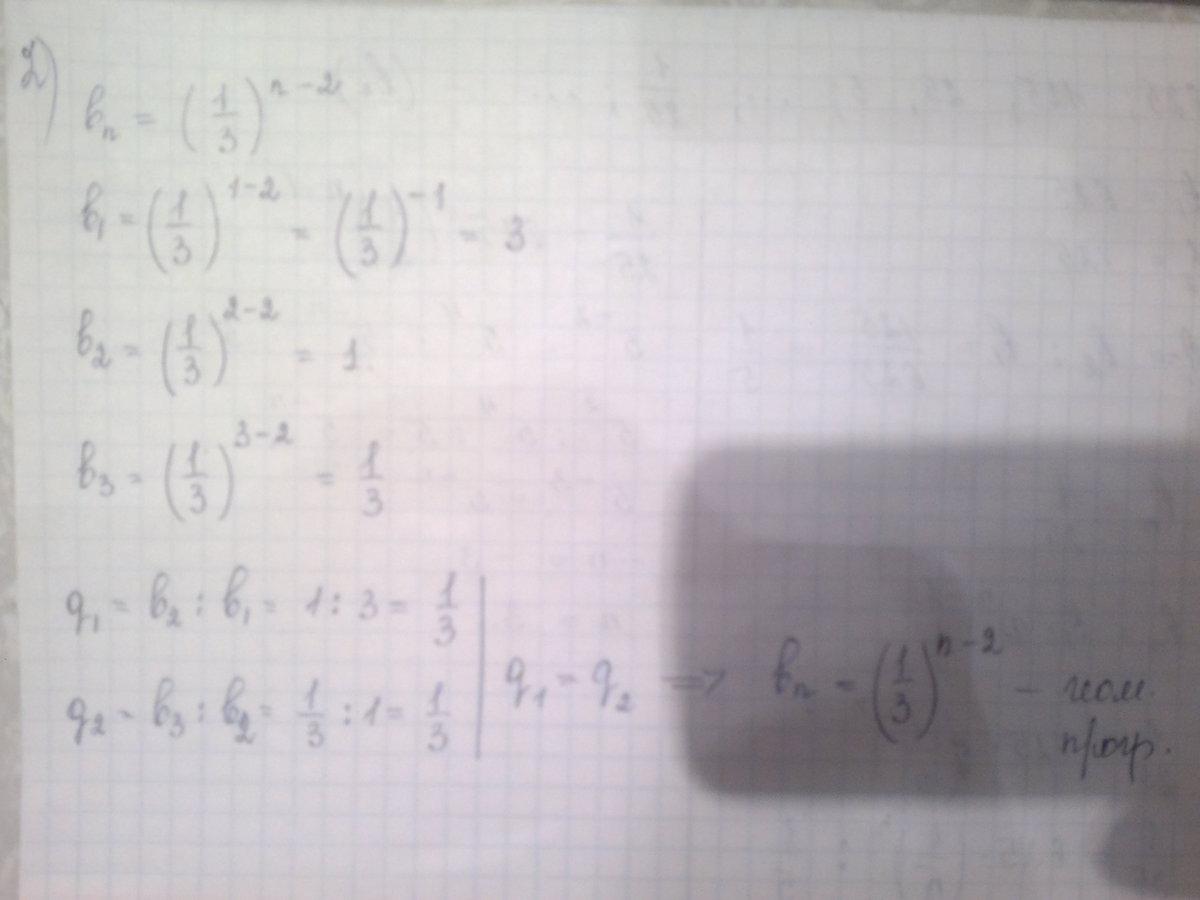 2)
bₙ = (1/3)ⁿ⁻²
b₁ = (1/3)¹⁻² = (1/3)⁻¹ = 3.
b₂ = (1/3)²⁻² = 1.
b₃ = (1/3)³⁻² = 1/3
q₁ = b₂ : b₁ = 1 : 3 = 1/3
q₂ = b₃ : b₂ = 1/3 : 1 = 1/3
q₁ = q₂ => bₙ = (1/3)ⁿ⁻² – геом.
прогр.